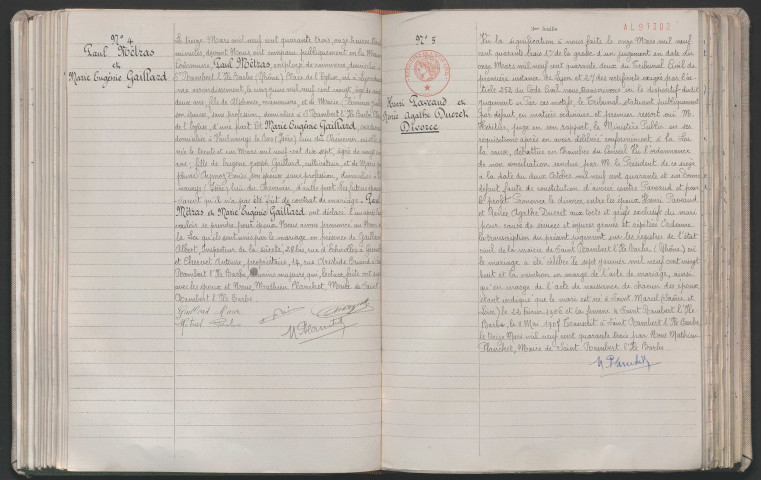 N° 4
Paul Métras
et
Marie Eugénie Gaillard
Le treize Mars mil neuf cent quarante trois, onze heures
minutes, devant Nous ont comparu publiquement en la Maison
Commune Paul Métras, employé de commerce, domicilié à
St Rambert l'Ile Barbe (Rhône) Place de l'Eglise, né à
arrondissement, le cinq mil neuf cent vingt, âgé de vingt
deux ans, fils de Alphonse, manœuvre, et de Marie
son épouse, sans profession, domiciliés à St Rambert l'Ile Barbe Place
de l'Eglise, d'une part Et Marie Eugénie Gaillard,
domiciliée à (Isère) lieu du
née le trente et un Mars mil neuf cent dix sept, âgée de vingt
ans, fille de Eugène Joseph Gaillard, cultivateur, et de Marie
son épouse, sans profession, domiciliés à
(Isère) lieu du d'autre part
qu'il n'a pas été fait de contrat de mariage. Paul
Métras et Marie Eugénie Gaillard ont déclaré l'un après l'autre
vouloir se prendre pour époux Nous avons prononcé au Nom de
la Loi qu'ils sont unis par le mariage en présence de Gaillard
Albert, Inspecteur de la sûreté, 28 bis, rue d'
et Antoine, propriétaire, 14, rue Aristide Briand à St
Rambert l'Ile Barbe, témoins majeurs, qui, lecture faite ont signé
avec les époux et Nous, Mathieu Planchet, Maire de Saint
Rambert l'Ile Barbe.
Gaillard Marie
Métras Paul
M Planchet
feuille
AL 97302
N° 5
Henri Pavaud et
Marie Agathe Ducret
Divorce
Vu la signification à nous faite le onze Mars mil neuf
cent quarante trois 1° de la grosse d'un jugement en date du
onze Mars mil neuf cent quarante deux du Tribunal Civil de
première instance de Lyon et 2° des certificats exigés par l'ar-
ticle 252 du Code Civil nous transcrivons ici le dispositif dudit
jugement. Par ces motifs, le Tribunal, statuant publiquement
par défaut, en matière ordinaire et premier ressort ouï M.
juge en son rapport, le Ministère Public en ses
réquisitions après en avoir délibéré conformément à la Loi
la cause, débattue en Chambre du Conseil Vu l'ordonnance
de non conciliation rendue par M. le Président de ce siège
à la date du deux Octobre mil neuf cent quarante et un Donne
défaut faute de constitution d'avoué contre Pavaud et pour
le profit Prononce le divorce entre les époux Henri Pavaud
et Marie Agathe Ducret aux torts et griefs exclusifs du mari
pour cause de sévices et injures graves et répétées Ordonne
la transcription du présent jugement sur les registres de l'état
civil de la mairie de Saint Rambert l'Ile Barbe (Rhône) où
le mariage a été célébré le sept janvier mil neuf cent vingt
huit et la mention en marge de l'acte de mariage, ainsi
qu'en marge de l'acte de naissance de chacun des époux
étant indiqué que le mari est né à Saint Marcel (Saône et
Loire) le 22 février 1906 et la femme à Saint Rambert l'Ile
Barbe, le 8 Mai 1909 Transcrit à Saint Rambert l'Ile Barbe
le treize Mars mil neuf cent quarante trois par Nous Mathieu
Planchet, Maire de Saint Rambert l'Ile Barbe.
M Planchet